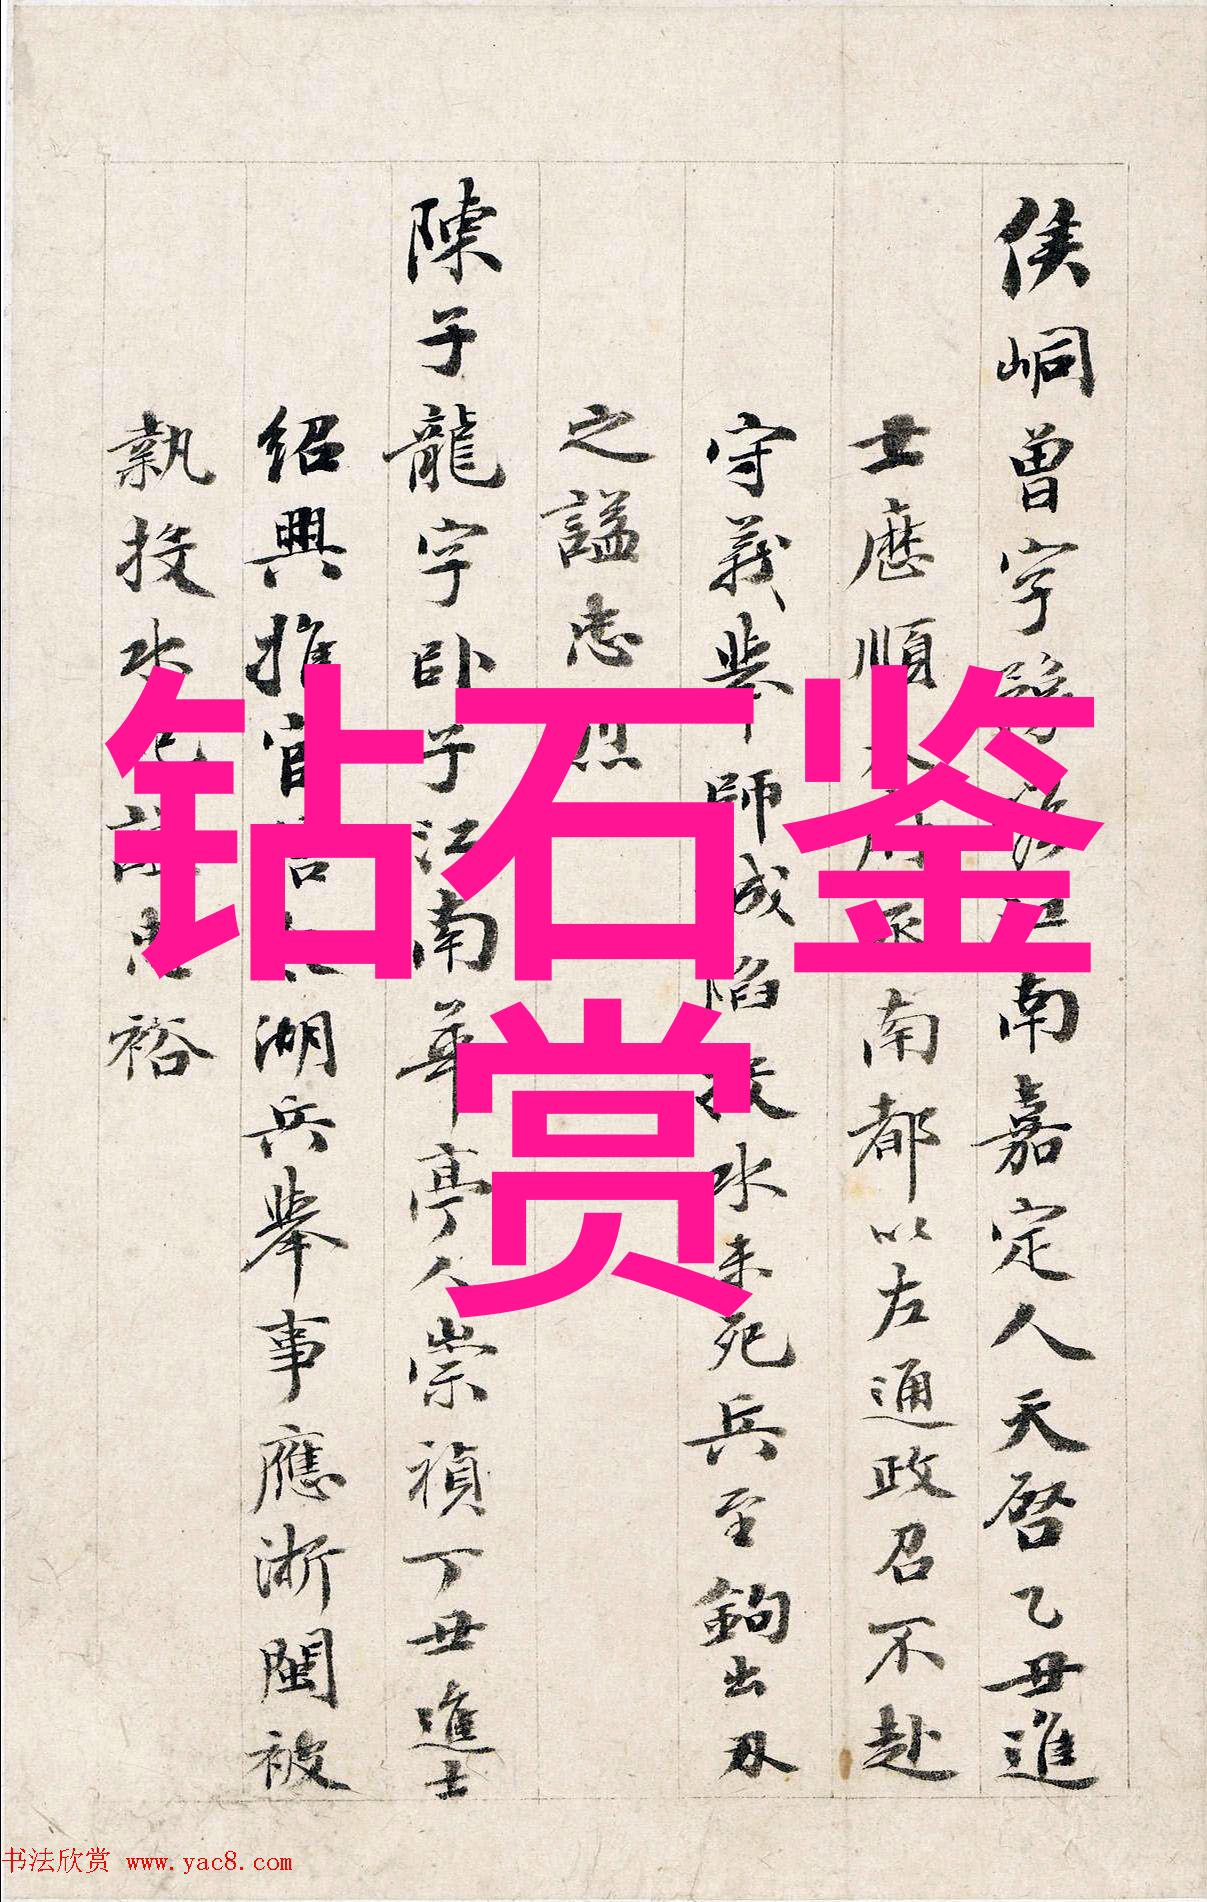 侯峒曾字豫瞻江南嘉定人天啓乙丑進
士歷順天府丞南都以左通政召不赴
守義舉師城陷投水未死兵至鉤出刃
之謚忠烈
陳子龍字臥子江南華亭人崇禎丁丑進士
紹興推官結太湖兵舉事應浙閩被
執投水死謚忠裕
钻石鉴
赏
书法欣赏 www.yac8.com